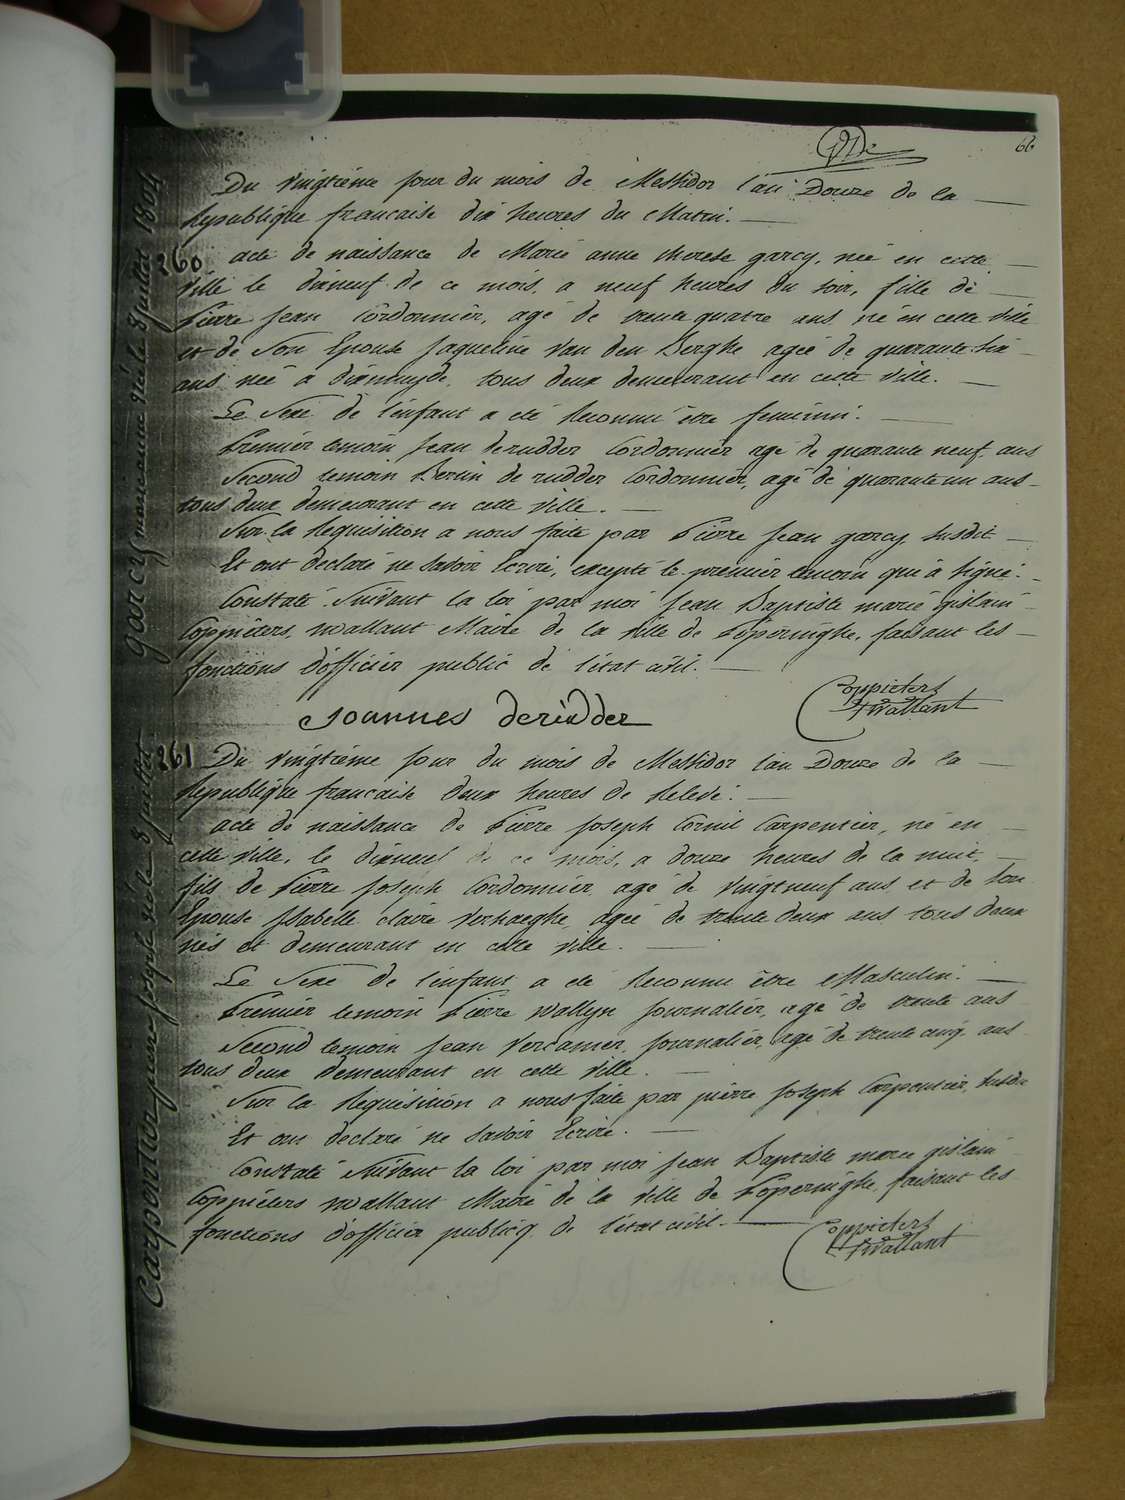 66
Du vingtième jour du mois de Messidor l'an Douze de la
Republique francaise dix heures du Matin.
260 acte de naissance de Marie anne therese garcy, née en cette
ville le dixneuf de ce mois, a neuf heures du soir, fille de
Pierre Jean Cordonnier, agé de trente quatre ans né en cette ville
et de Son Epouse Jaqueline Van den Berghe agée de quarante six
ans née a dixmuyde, tous deux demeurant en cette ville.
Le Sexe de l'enfant a été Reconnu être feminin.
Premier temoin Jean derudder Cordonnier agé de quarante neuf ans
Second temoin de rudder Cordonnier, agé de quarante un ans
tous deux demeurant en cette ville.
Sur la Requisition a nous faite par Pierre Jean garcy susdit
Et ont declaré ne Savoir Ecrire, excepté le premier temoin qui a signé.
Constaté Suivant la loi par moi Jean Baptiste marie gislain
Coppieters Wallant Maire de la ville de Poperinghe, faisant les
fonctions d'officier public de l'état civil.
Coppieters
Wallant
Joannes deridder
261 Du vingtième jour du mois de Messidor l'an Douze de la
Republique francaise deux heures de Relevé.
acte de naissance de Pierre Joseph Cornil Carpentier, né en
cette ville, le dixneuf de ce mois, a douze heures de la nuit,
fils de Pierre Joseph Cordonnier, agé de vingtneuf ans et de Son
Epouse Isabelle claire Verhaeghe, agée de trente deux ans tous deux
nés et demeurant en cette ville.
Le Sexe de l'enfant a été Reconnu être Masculin.
Premier temoin Pierre wallyn Journalier, agé de trente ans
Second temoin Jean Journalier, agé de trente cinq ans
tous deux demeurant en cette ville.
Sur la Requisition a nous faite par pierre Joseph Carpentier, susdit
Et ont declaré ne Savoir Ecrire.
Constaté Suivant la loi par moi Jean Baptiste marie gislain
Coppieters Wallant Maire de la ville de Poperinghe, faisant les
fonctions d'officier publicq de l'état civil.
Coppieters
Wallant
garcy marie anne née le 8 juillet 1804
Carpentier pierre joseph né le 8 juillet